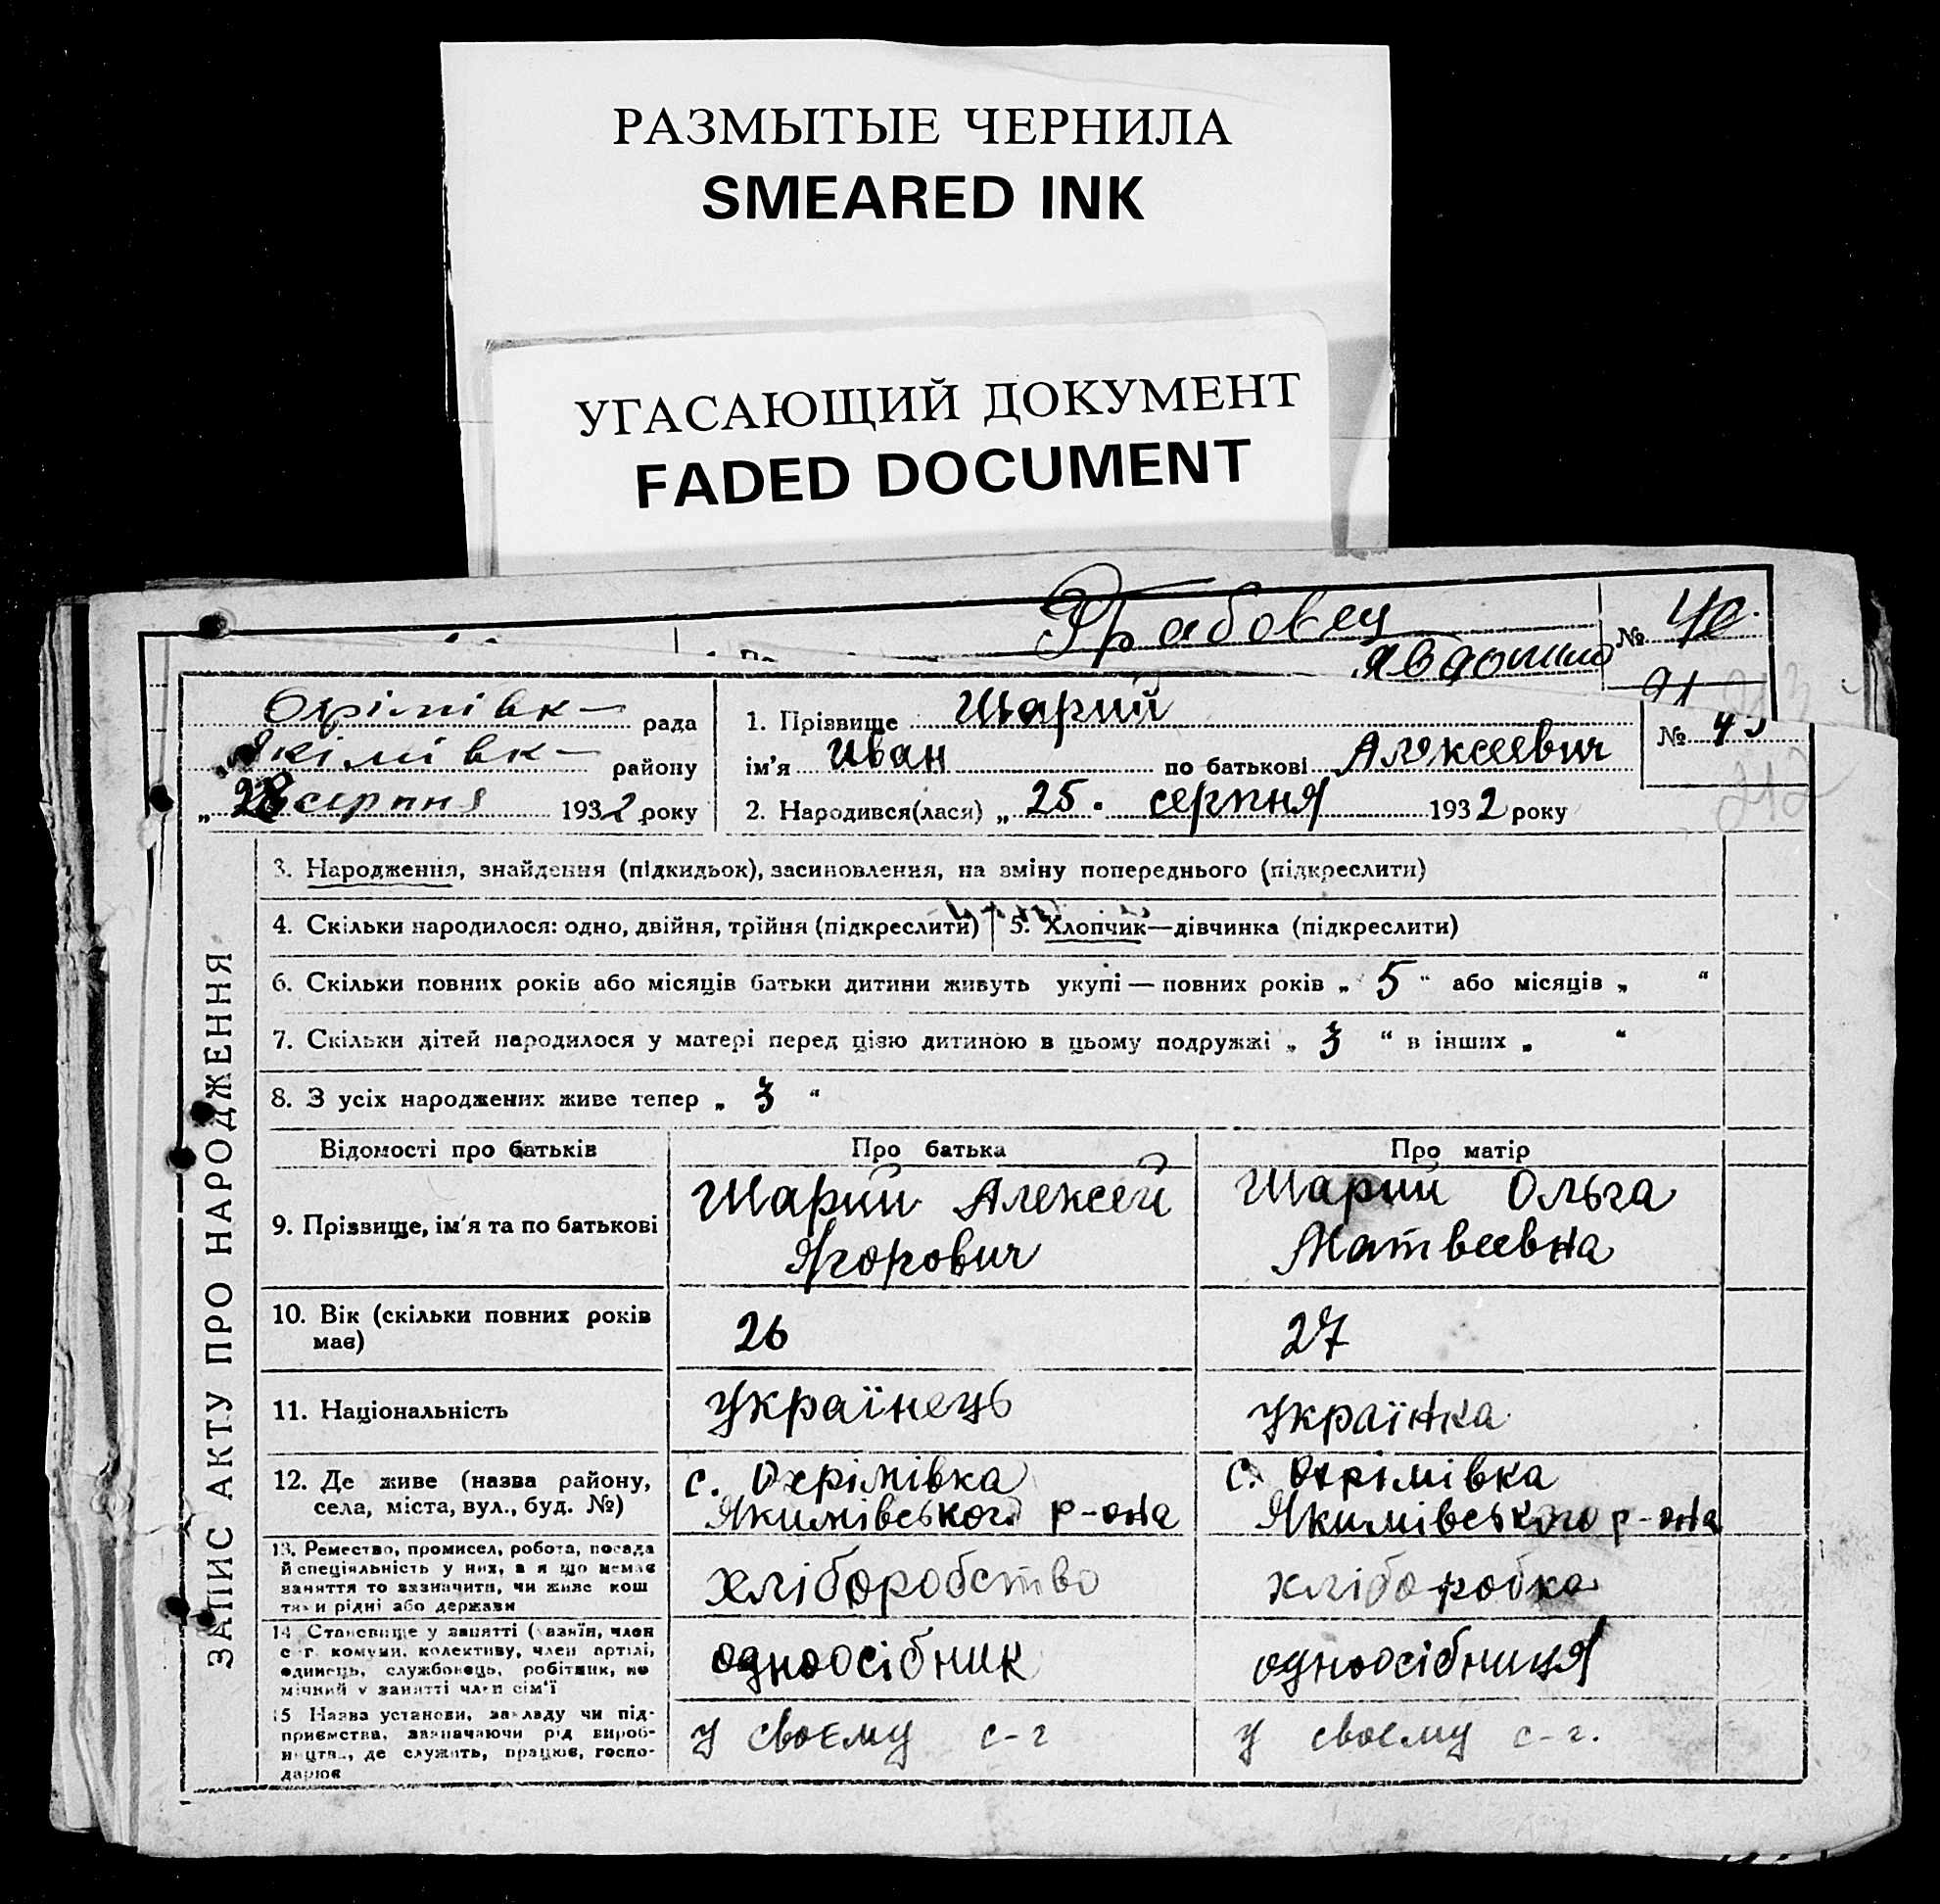 РАЗМЫТЫЕ ЧЕРНИЛА
SMEARED INK
УГАСАЮЩИЙ ДОКУМЕНТ
FADED DOCUMENT
Грабовец
№ 40.
Охрімівк- рада
Якімівк- району
„28 серпня 1932 року
1. Прізвище Шарий
ім'я Иван по батькові Алексеевич
2. Народився(лася) „25. серпня 1932 року
№
212
ЗАПИС АКТУ ПРО НАРОДЖЕННЯ
3. Народження, знайдення (підкидьок), засиновлення, на зміну попереднього (підкреслити)
4. Скільки народилося: одно, двійня, трійня (підкреслити) 5. Хлопчик—дівчинка (підкреслити)
6. Скільки повних років або місяців батьки дитини живуть укупі — повних років „ 5 “ або місяців „ “
7. Скільки дітей народилося у матері перед цією дитиною в цьому подружжі „ 3 “ в інших „ “
8. З усіх народжених живе тепер „ 3 “
Відомості про батьків Про батька Про матір
9. Прізвище, ім'я та по батькові
Шарий Алексей
Ягорович
Шарий Ольга
Матвеевна
10. Вік (скільки повних років
має)
26
27
11. Національність
українець
українка
12. Де живе (назва району,
села, міста, вул., буд. №)
с. Охрімівка
Якимівського р-она
с. Охрімівка
Якимівського р-она
13. Ремество, промисел, робота, посада
й спеціяльність у них, а я що немає
заняття то зазначити, чи живе кош
тами рідні або держави
хліборобство
хлібо робка
14 Становище у занятті (хазяїн, член
с г. комуни, колективу, член артілі,
одинець, службовець, робітник, по
мічний у занятті член сім'ї
одноосібник
одноосібниця
15 Назва установи, закладу чи під-
приємства, зазначаючи рід вироб-
ництва, де служить, працює, госпо-
дарює
у своєму с-г
у своєму с-г.